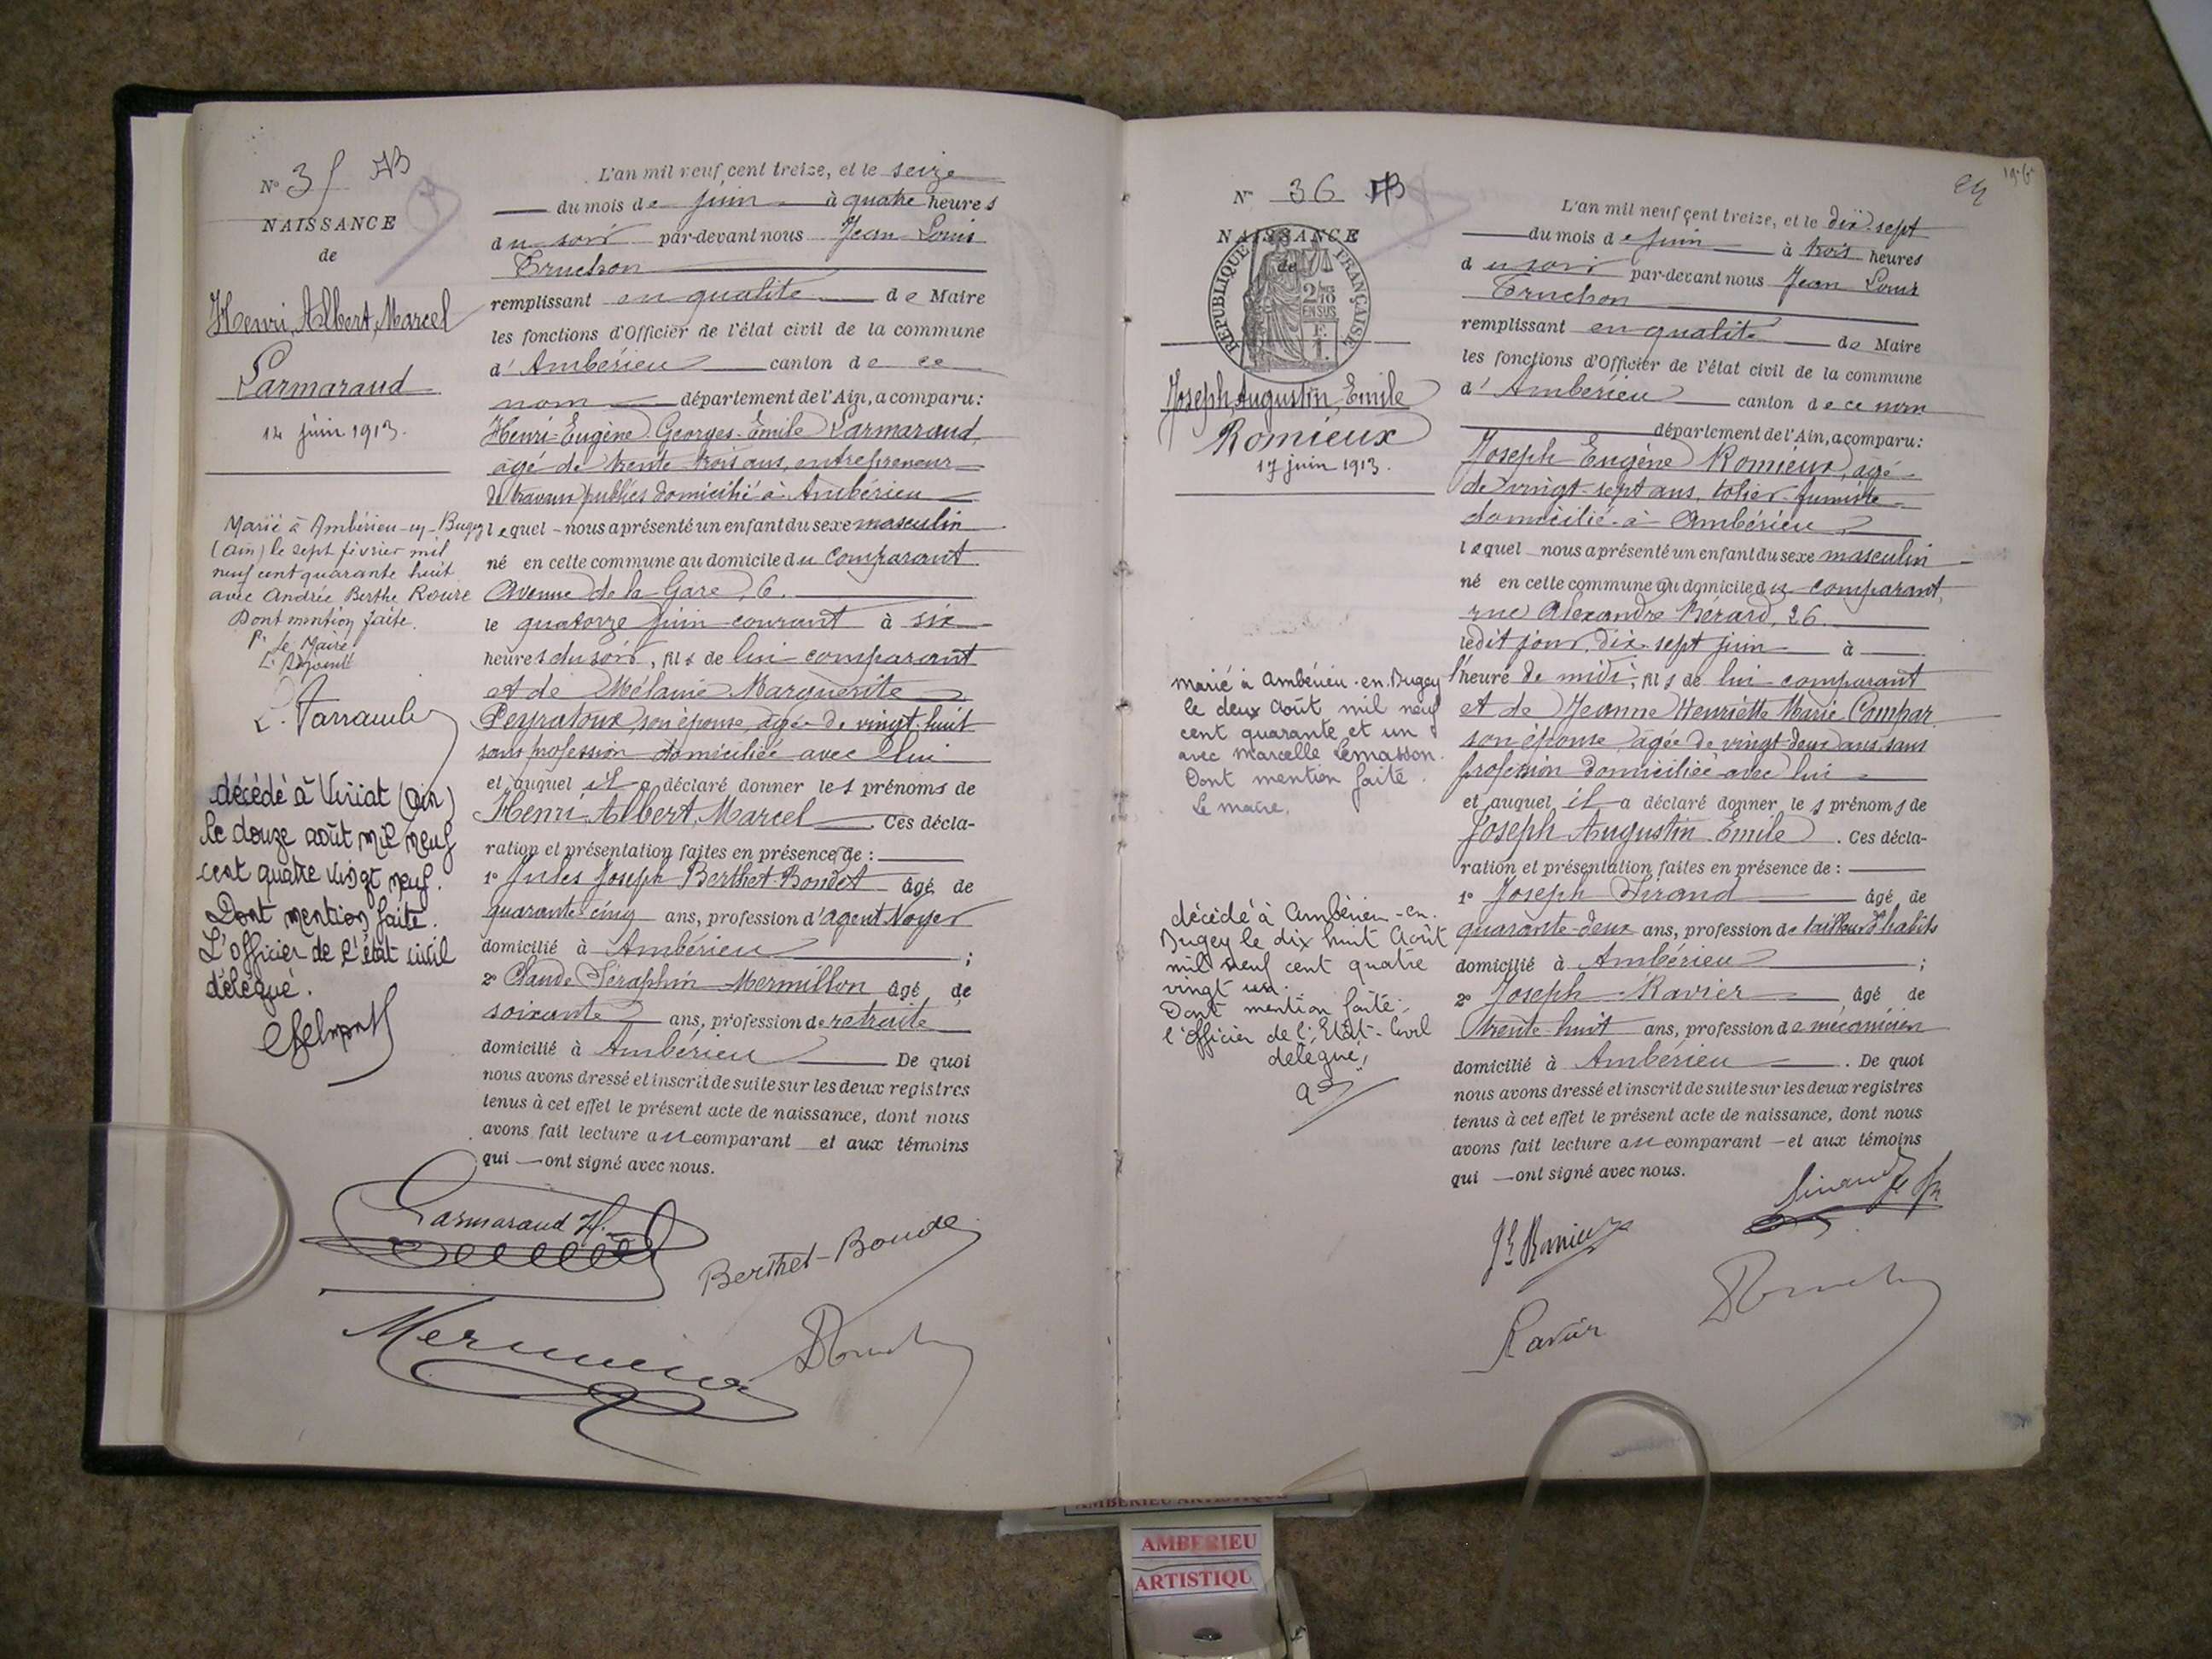 N° 35
NAISSANCE
de
Henri, Albert, Marcel
Larmaraud
14 juin 1913.
Marié à Ambérieu-en-Bugey
(Ain) le sept février mil
neuf cent quarante huit
avec Andrée Berthe Roure
Dont mention faite.
Pr Le Maire
décédé à Viriat (Ain)
le douze août mil neuf
cent quatre vingt neuf.
Dont mention faite.
L'officier de l'état civil
délégué.
L'an mil neuf cent treize, et le seize
du mois de juin à quatre heures
du soir par-devant nous Jean Louis
Truchon
remplissant en qualité de Maire
les fonctions d'Officier de l'état civil de la commune
d'Ambérieu canton de ce
nom département de l'Ain, a comparu :
Henri-Eugène Georges-Emile Larmaraud,
âgé de trente trois ans, entrepreneur
de travaux publics domicilié à Ambérieu
lequel nous a présenté un enfant du sexe masculin
né en cette commune au domicile du comparant
Avenue de la Gare, 6.
le quatorze juin courant à six
heures du soir, fils de lui comparant
et de Mélanie Marguerite
Peyratoux, son épouse, âgée de vingt-huit
sans profession domiciliée avec lui
et auquel il a déclaré donner les prénoms de
Henri, Albert, Marcel. Ces décla-
ration et présentation faites en présence de :
1° Jules Joseph Berthet-Bondet âgé de
quarante-cinq ans, profession d'agent Voyer
domicilié à Ambérieu ;
2° Claude Séraphin Mermillon âgé de
soixante ans, profession de retraité
domicilié à Ambérieu De quoi
nous avons dressé et inscrit de suite sur les deux registres
tenus à cet effet le présent acte de naissance, dont nous
avons fait lecture au comparant et aux témoins
qui ont signé avec nous.
Larmaraud H.
Berthet-Bondet
N° 36
NAISSANCE
de
RÉPUBLIQUE FRANÇAISE
2/10
EN SUS
Joseph, Augustin, Emile
Romieux
17 juin 1913.
marié à Ambérieu-en-Bugey
le deux Août mil neuf
cent quarante et un
avec Marcelle Lemasson.
Dont mention faite.
Le maire,
décédé à Ambérieu-en-
Bugey le dix huit Août
mil neuf cent quatre
vingt un.
Dont mention faite.
l'Officier de l'Etat-Civil
délégué,
L'an mil neuf cent treize, et le dix-sept
du mois de juin à trois heures
du soir par-devant nous Jean Louis
Truchon
remplissant en qualité de Maire
les fonctions d'Officier de l'état civil de la commune
d'Ambérieu canton de ce nom
département de l'Ain, a comparu :
Joseph Eugène Romieux, âgé
de vingt-sept ans, tolier-fumiste
domicilié à Ambérieu
lequel nous a présenté un enfant du sexe masculin
né en cette commune au domicile du comparant,
rue Alexandre Bérard, 26.
ledit jour, dix-sept juin à
l'heure de midi, fils de lui comparant
et de Jeanne Henriette Marie Compar
son épouse âgée de vingt-deux ans, sans
profession domiciliée avec lui
et auquel il a déclaré donner les prénoms de
Joseph Augustin Emile. Ces décla-
ration et présentation faites en présence de :
1° Joseph Sirand âgé de
quarante-deux ans, profession de tailleur d'habits
domicilié à Ambérieu ;
2° Joseph Ravier âgé de
trente-huit ans, profession de mécanicien
domicilié à Ambérieu. De quoi
nous avons dressé et inscrit de suite sur les deux registres
tenus à cet effet le présent acte de naissance, dont nous
avons fait lecture au comparant et aux témoins
qui ont signé avec nous.
Ravier
AMBERIEU ARTISTIQUE
AMBERIEU
ARTISTIQU